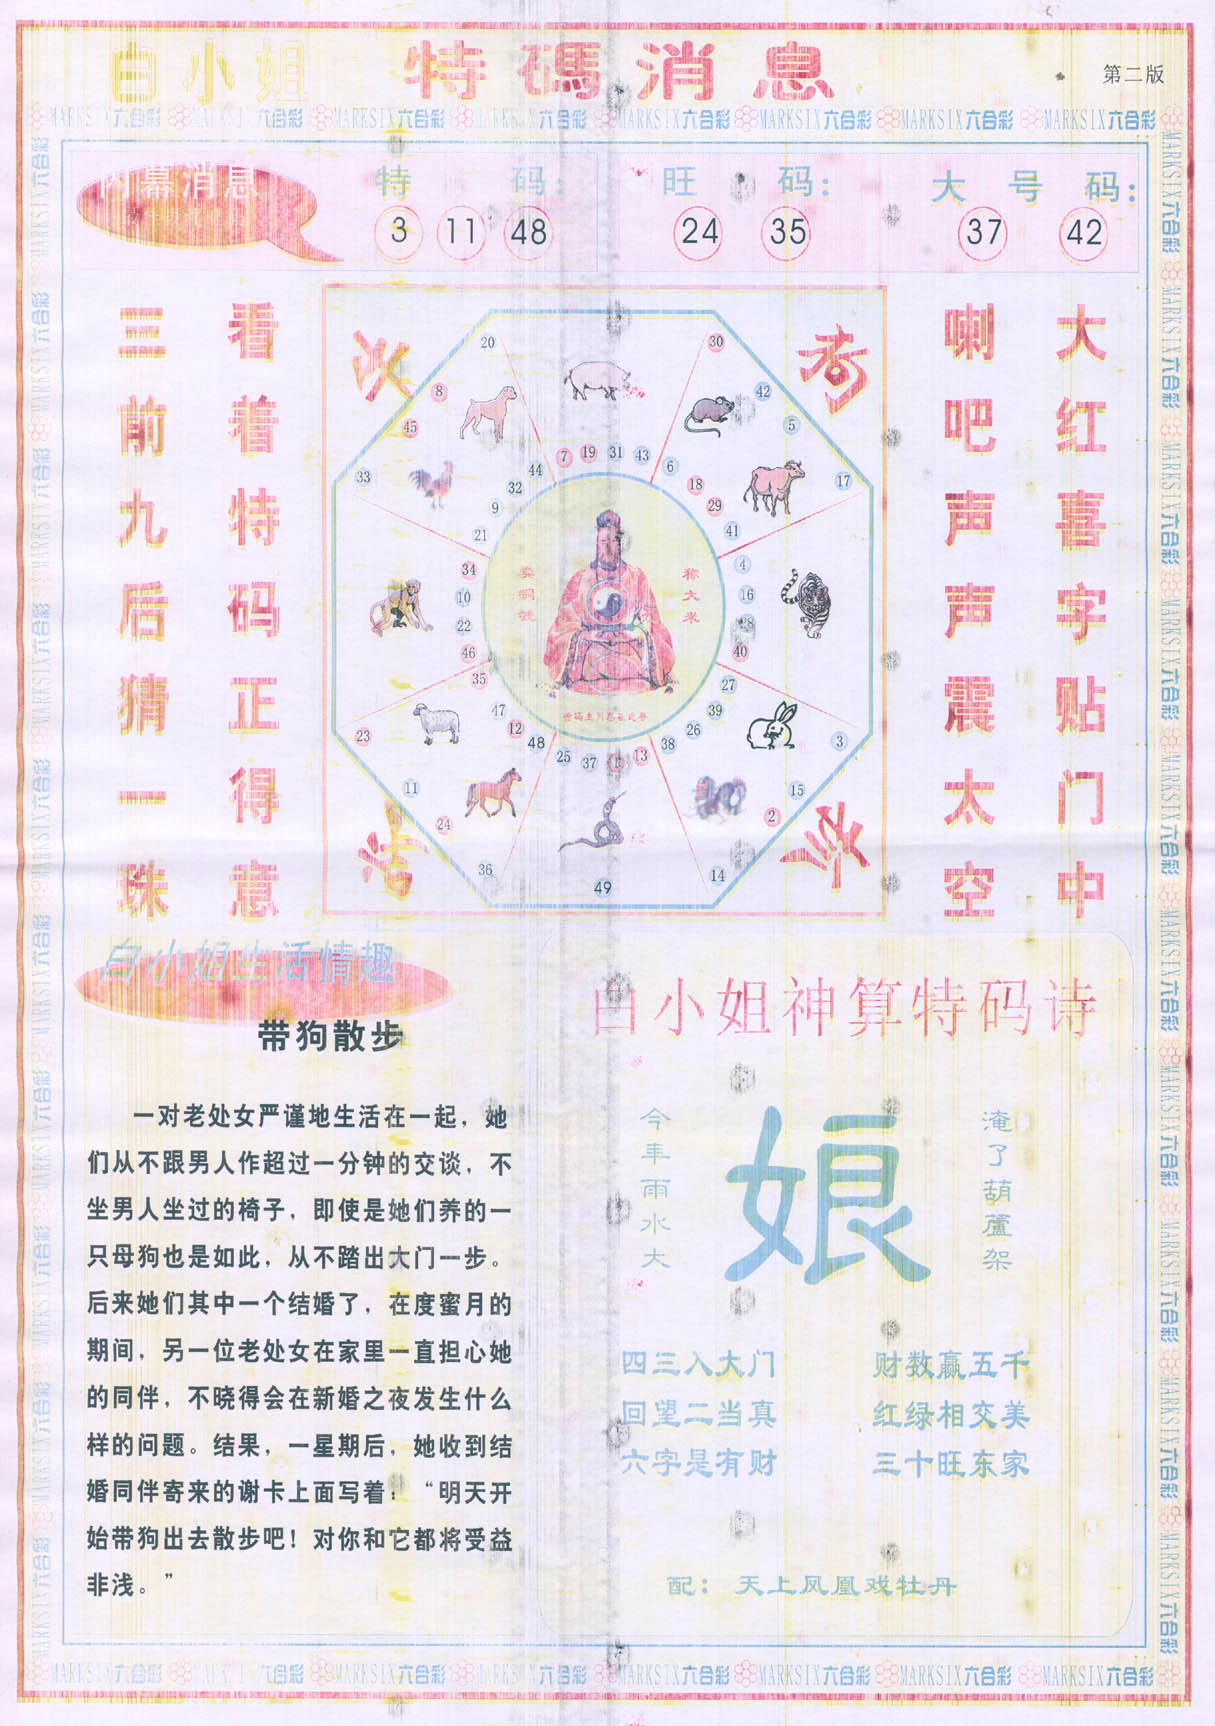 白小姐 特碼消息
第二版
MARKSIX六合彩 MARKSIX六合彩 MARKSIX六合彩 MARKSIX六合彩 MARKSIX六合彩 MARKSIX六合彩 MARKSIX六合彩 MARKSIX六合彩
内幕消息
特 码：
3 11 48
旺 码：
24 35
大 号 码：
37 42
大红喜字贴门中
喇叭声声震太空
看着特码正得意
三前九后猜一珠
20
30
8
42
45
5
33
17
44
7 19 31 43
6
32
18
9
29
21
41
34
4
10
16
22
28
46
40
35
27
47
39
12
26
48
38
25 37 1 13
23
3
11
15
24
2
36
14
49
称大米
白小姐生活情趣
带狗散步
一对老处女严谨地生活在一起，她
们从不跟男人作超过一分钟的交谈，不
坐男人坐过的椅子，即使是她们养的一
只母狗也是如此，从不踏出大门一步。
后来她们其中一个结婚了，在度蜜月的
期间，另一位老处女在家里一直担心她
的同伴，不晓得会在新婚之夜发生什么
样的问题。结果，一星期后，她收到结
婚同伴寄来的谢卡上面写着：“明天开
始带狗出去散步吧！对你和它都将受益
非浅。”
白小姐神算特码诗
今年雨水大
娘
淹了葫蘆架
四三入大门 财数赢五千
回望二当真 红绿相交美
六字是有财 三十旺东家
配：天上凤凰戏牡丹
MARKSIX六合彩 MARKSIX六合彩 MARKSIX六合彩 MARKSIX六合彩 MARKSIX六合彩 MARKSIX六合彩 MARKSIX六合彩 MARKSIX六合彩